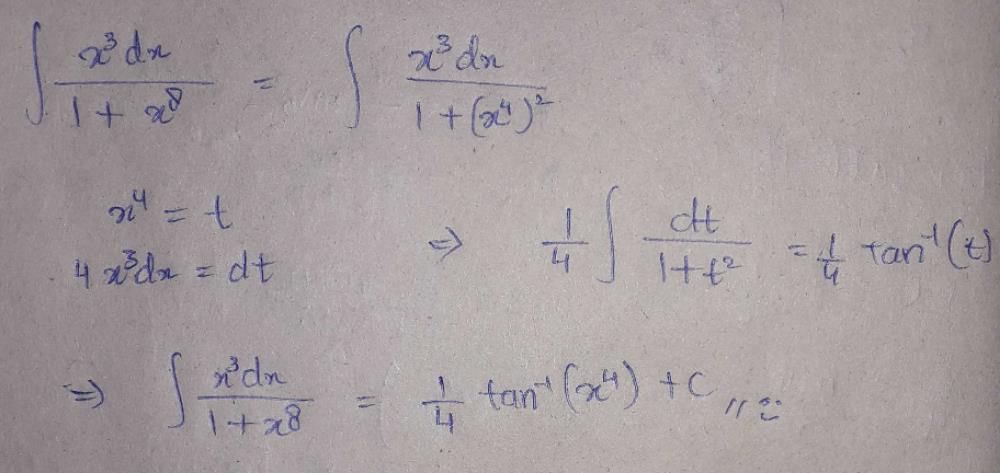 ∫ x³dx / 1 + x⁸ = ∫ x³dx / 1 + (x⁴)²
x⁴ = t
4x³dx = dt ⇒ 1/4 ∫ dt / 1+t² = 1/4 tan⁻¹(t)
⇒ ∫ x³dx / 1+x⁸ = 1/4 tan⁻¹(x⁴) + C //